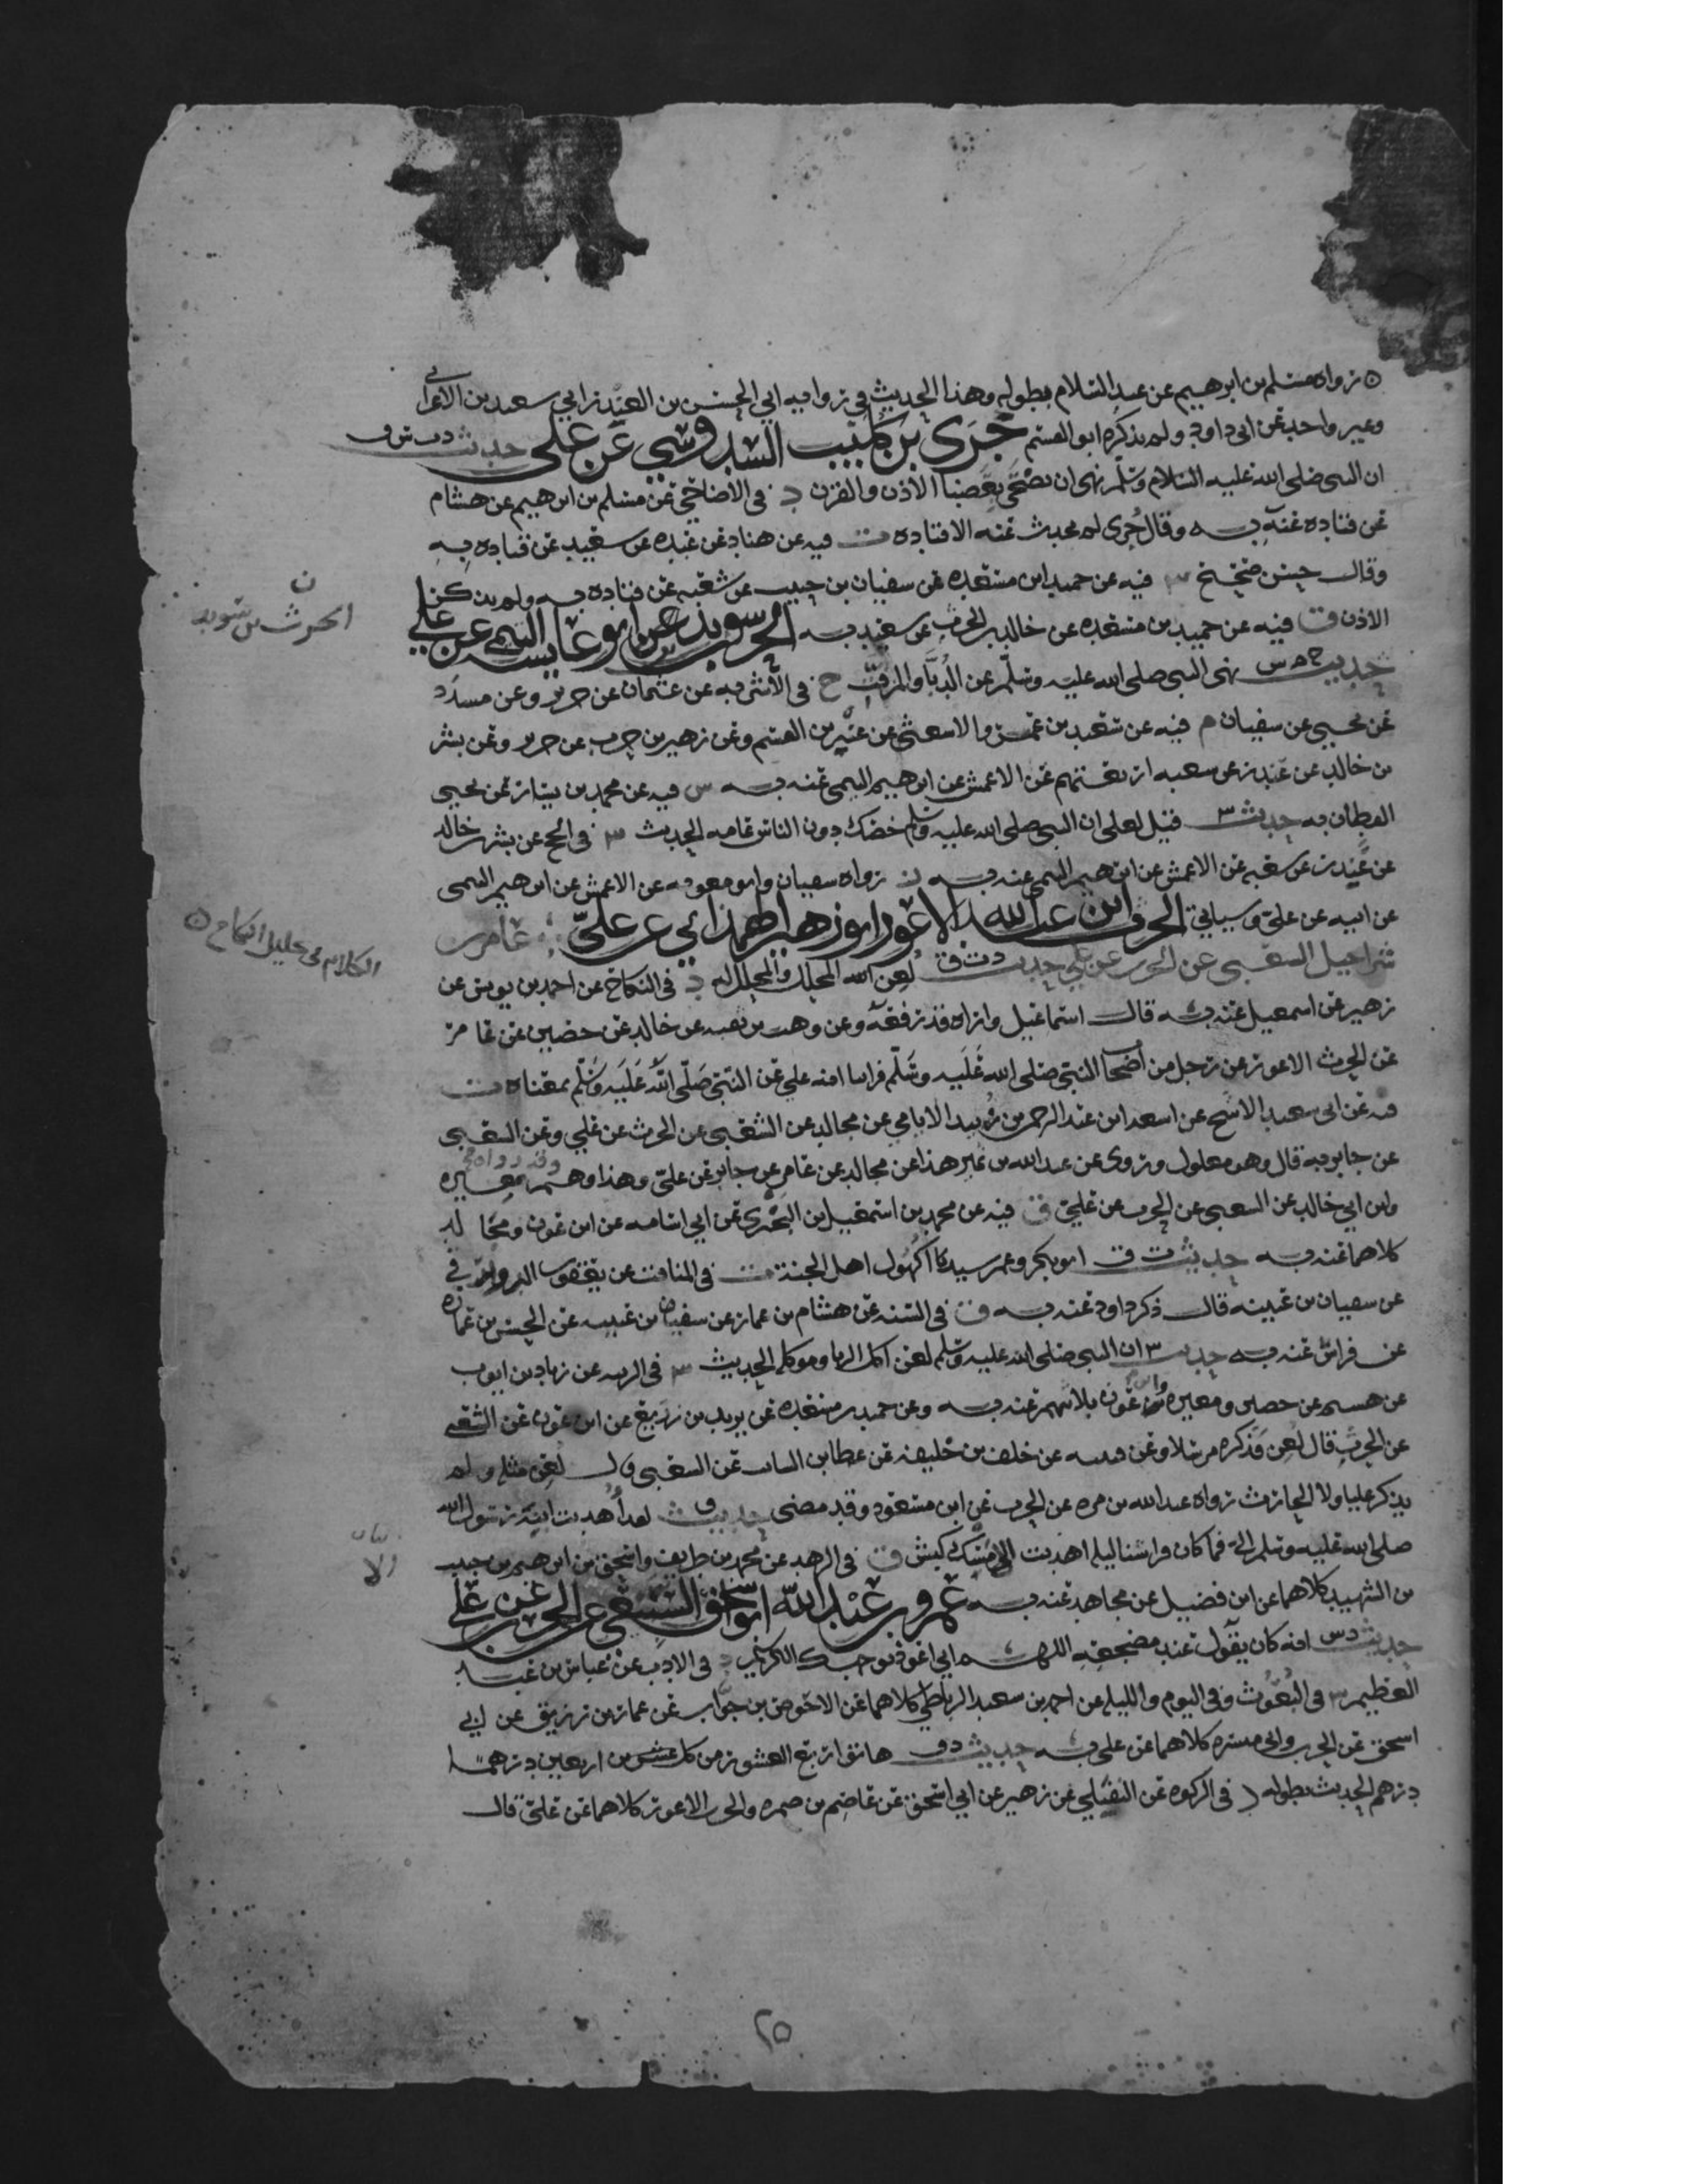 ه رواه مسلم بن ابرهيم عن عبد السلام بطوله وهذا الحديث في رواية ابي الحسن بن العبد وابي سعيد بن الاعرابي
وغير واحد عن ابي داود ولم يذكره ابو القسم جرى بن كليب السدوسي عن علي حديث د ت س ق
ان النبي صلى الله عليه السلام وسلم نهى ان يضحى بعضبا الاذن والقرن د في الأضاحي عن مسلم بن ابرهيم عن هشام
عن قتاده عنه به وقال جرى لم يحدث عنه الا قتاده ت فيه عن هناد عن عبده عن سعيد عن قتاده به
وقال حسن صحيح س فيه عن حميد ابن مسعده عن سفيان بن حبيب عن شعبه عن قتاده به ولم يذكر
الاذن ق فيه عن حميد بن مسعده عن خالد بن الحرث عن سعيد به الحرث بن سويد ابو عايشه التيمي عن علي
حديث خ م س نهى النبي صلى الله عليه وسلم عن الدبا والمزفت خ في الأشربه عن عثمان عن جرير وعن مسدد
عن يحيى عن سفيان م فيه عن سعيد بن عمرو الاشعثي عن عبثر بن القسم وعن زهير بن حرب عن جرير وعن بشر
بن خالد عن غندر عن شعبه اربعتهم عن الاعمش عن ابرهيم التيمي عنه به س فيه عن محمد بن بشار عن يحيى
القطان به حديث س قيل لعلي ان النبي صلى الله عليه وسلم خصك دون الناس عامه الحديث س في الحج عن بشر بن خالد
عن غندر عن شعبه عن الاعمش عن ابرهيم التيمي عنه به ز رواه سفيان وابو معويه عن الاعمش عن ابرهيم التيمي
عن ابيه عن علي وسياتي الحرث ابن عبد الله الاعور ابو زهير الهمداني عن علي عامر بن
شراحيل الشعبي عن الحرث عن علي حديث د ت ق لعن الله المحلل والمحلل له د في النكاح عن احمد بن يونس عن
زهير عن اسمعيل عنه به قال اسماعيل واراه قد رفعه وعن وهب بن بقيه عن خالد عن حصين عن عامر
عن الحرث الاعور عن رجل من اصحاب النبي صلى الله عليه وسلم فراينا انه علي عن النبي صلى الله عليه وسلم بمعناه ت
فيه عن ابي سعيد الاشج عن اشعث ابن عبد الرحمن بن زبيد الايامي عن مجالد عن الشعبي عن الحرث عن علي وعن الشعبي
عن جابر به قال وهو معلول وروى عن عبد الله بن نمير هذا عن مجالد عن عامر عن جابر عن علي وهذا وهم وقد رواه مغيره
وابن ابي خالد عن الشعبي عن الحرث عن علي ق فيه عن محمد بن اسمعيل بن البختري عن ابي اسامه عن ابن عون ومجالد
كلاهما عنه به حديث ت ق ابو بكر وعمر سيدا كهول اهل الجنة ت في المناقب عن يعقوب الدورقي
عن سفيان بن عيينه قال ذكر داود عنه به ق في السنه عن هشام بن عمار عن سفيان بن عيينه عن الحسن بن عماره
عن فراس عنه به حديث س ان النبي صلى الله عليه وسلم لعن اكل الربا وموكله الحديث س في الزينه عن زياد بن ايوب
عن هشيم عن حصين ومغيره وابن عون ثلاثتهم عنه به وعن حميد بن مسعده عن يزيد بن زريع عن ابن عون عن الشعبي
عن الحرث قال لعن فذكره مرسلا وعن قتيبه عن خلف بن خليفه عن عطا بن السايب عن الشعبي قال لعن مثله ولم
يذكر عليا ولا الحارث رواه عبد الله بن مره عن الحرث عن ابن مسعود وقد مضى حديث ق لقد أهديت ابنة رسول الله
صلى الله عليه وسلم الي فما كان فراشنا ليلة اهديت الا مسك كبش ق في الزهد عن محمد بن طريف واسحق بن ابرهيم بن حبيب
بن الشهيد كلاهما عن ابن فضيل عن مجالد عنه به عمرو بن عبد الله ابو اسحق السبيعي عن الحرث عن علي
حديث د س انه كان يقول عند مضجعه اللهم اني اعوذ بوجهك الكريم د في الادب عن عباس بن عبد
العظيم س في النعوت وفي اليوم والليله عن احمد بن سعيد الرباطي كلاهما عن الاحوص بن جواب عن عمار بن رزيق عن ابي
اسحق عن الحرث وابي ميسره كلاهما عن علي به حديث د ق هاتوا ربع العشور من كل اربعين درهما
درهم الحديث بطوله د في الزكوه عن النفيلي عن زهير عن ابي اسحق عن عاصم بن ضمره والحرث الاعور كلاهما عن علي قال
ن
الحرث بن سويد
الكلام على تحليل النكاح ه
الا
٢٥